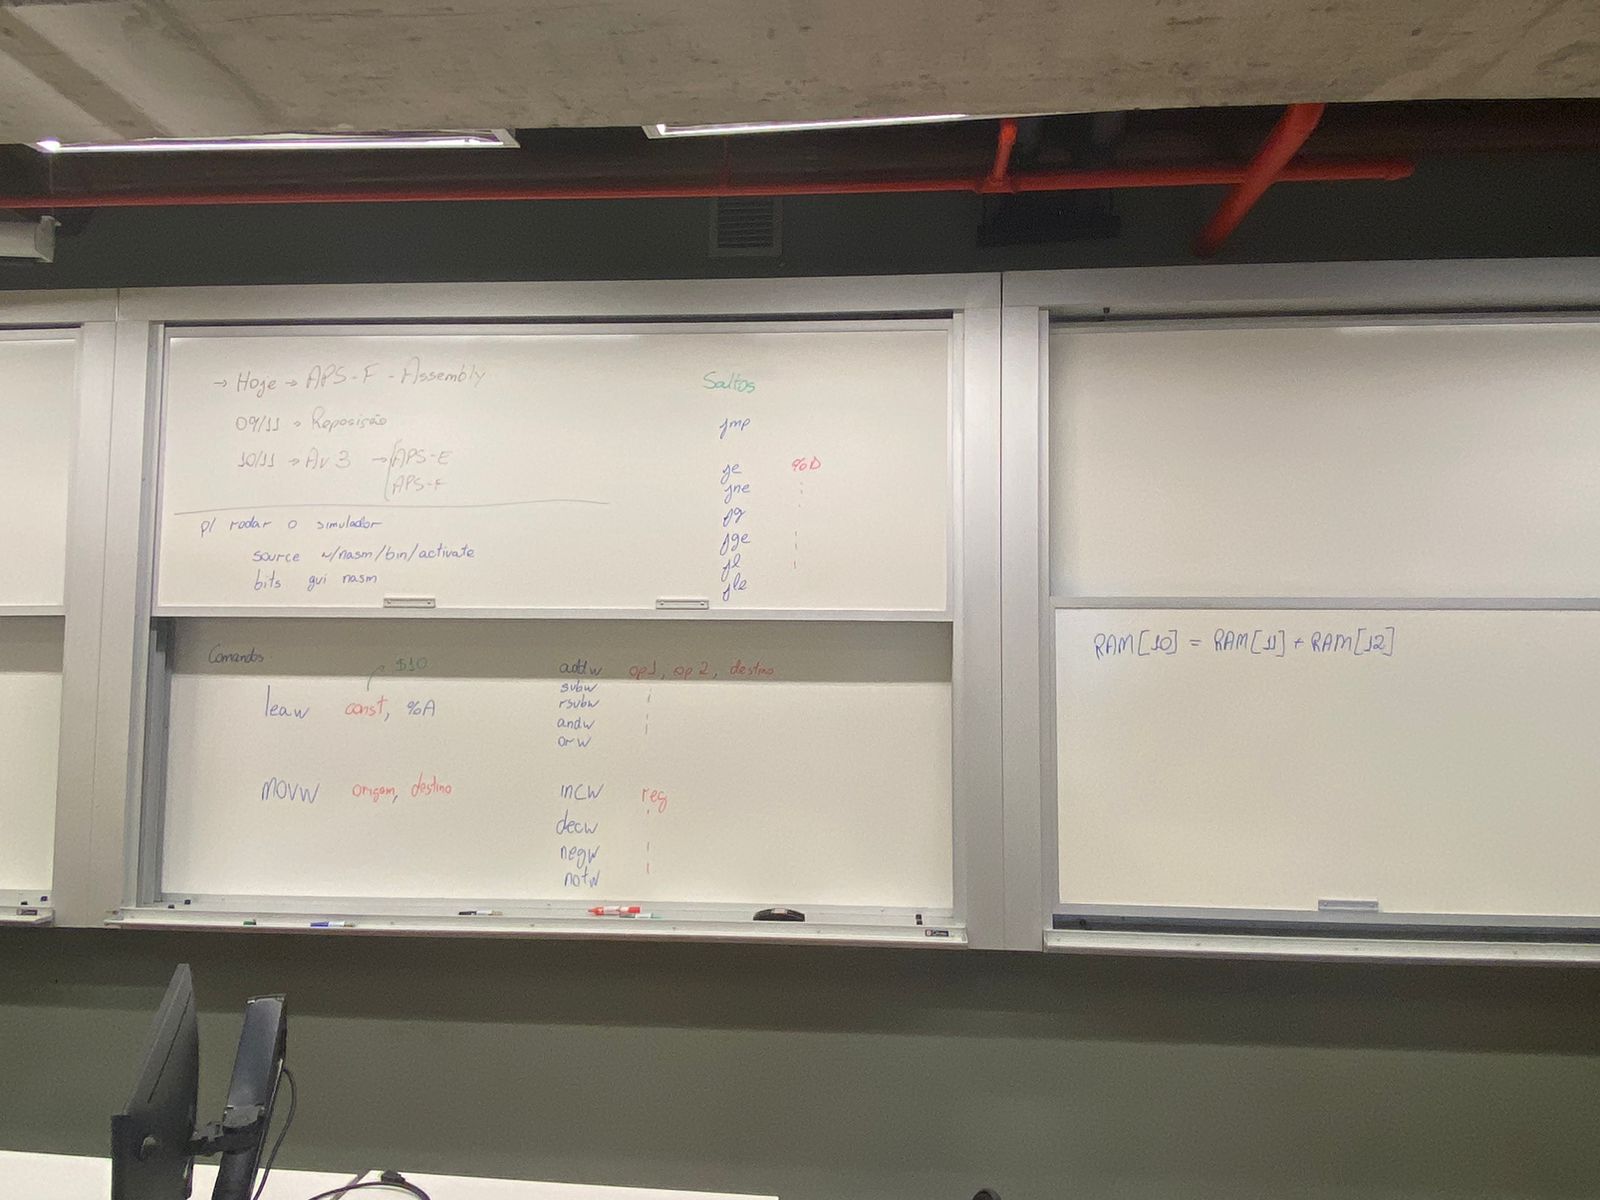 → Hoje → APS-F - Assembly
09/11 → Reposição
10/11 → Av 3 → APS-E
APS-F
p/ rodar o simulador
source ~/nasm/bin/activate
bits gui nasm
Saltos
jmp
je %D
jne
jg
jge
jl
jle
Comandos
$10
leaw const, %A
movw origem, destino
addw op1, op2, destino
subw
rsubw
andw
orw
incw reg
decw
negw
notw
RAM[10] = RAM[11] + RAM[12]